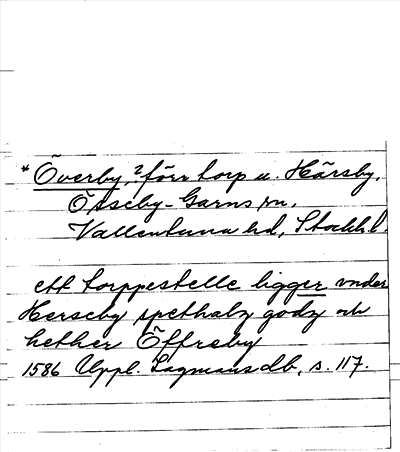 * Överby, ? förr torp u. Härsby,
Össeby-Garns sn,
Vallentuna hd, Stockh l.
ett torppestelle ligger vnder
Herseby spethalz godz och
hether Öffreby
1586 Uppl. Lagmansdb, s. 117.